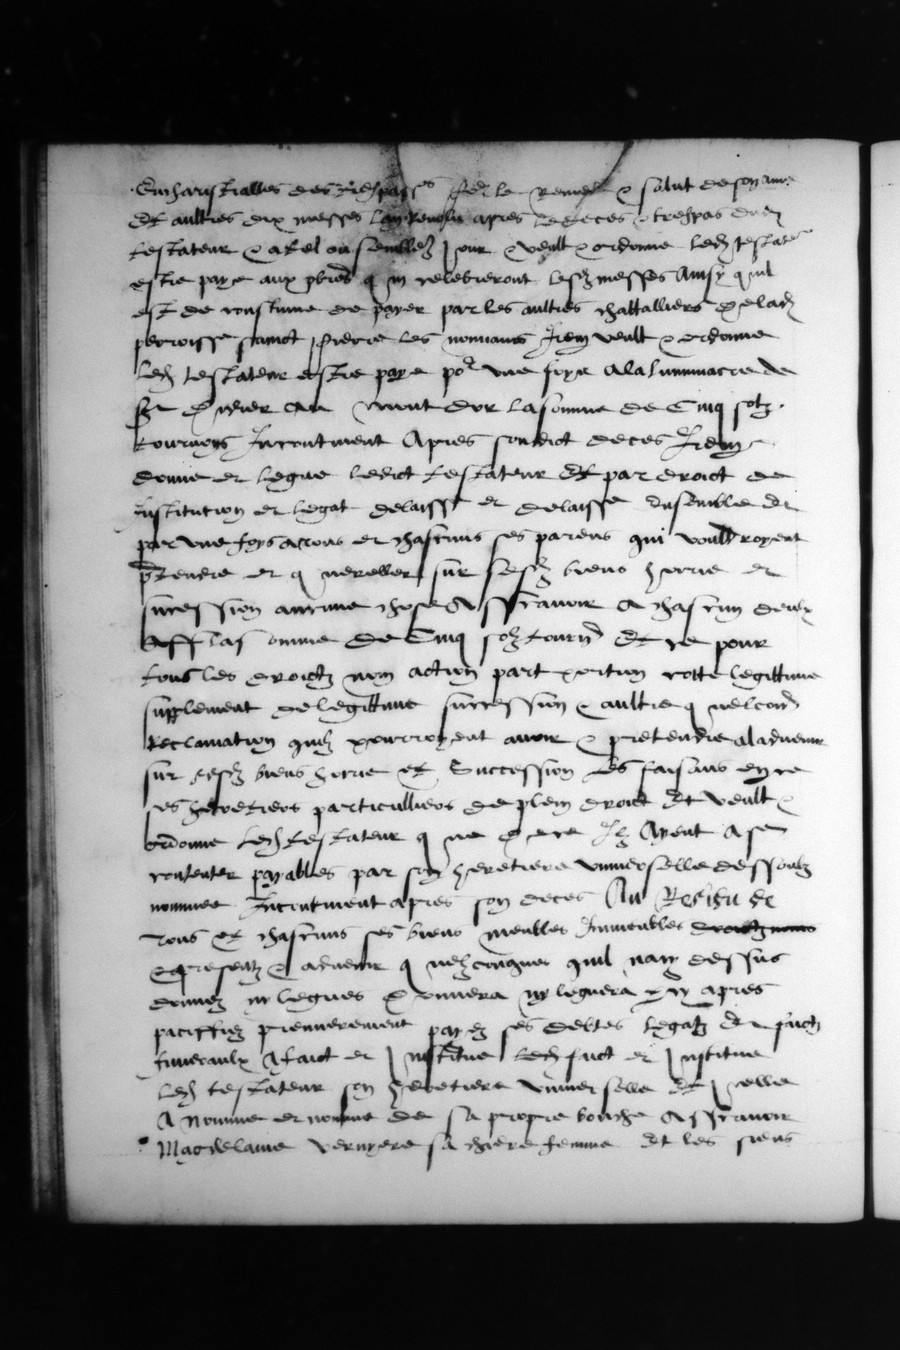 Eucharistialles des trespasses pour le remede & salut de son ame
Et aultres dix messes lan revolu apres le deces & trespas dud
testateur & a tel ou semblable jour & veult & ordonne led testateur
estre paye aux pbres q y celebreront lesd messes Ainsy quil
est de coustume de payer par les aultres chattalliers de lad
perroisse sainct pierre les nonnains Item veult & ordonne
led testateur estre paye por une foys a la lumminacre de
la somme de Cinq solz
tournoys Incontinent Apres sondict deces Item
donne et legue ledict testateur Et par droict de
Institution et legat delaisse et delaisse Ensemble et
par une foys a tous et chascuns ses parens qui vouldroyent
ptendre et quereller sur sesd biens horrie et
sucession aucune chose Assavoir a chascun deulx
la somme de Cinq solz tourn Et ce pour
tous les droictz nom action part portion cotte legittime
supplement de legittime succession & aultre quelconq
Reclamation quilz pourroyent avoir & pretendre a ladvenir
sur sesd biens horrie et Succession Les faisans en ce
ses heretiers particulliers de plein droict Et veult &
ordonne led testateur que de ce Ilz Ayent a se
contenter payables par son heretiere universelle dessoubz
nommee Incontinent apres son deces Au Residu de
Tous et chascuns ses biens meubles Immeubles droictz noms
& presentz & advenir quelzconques quil nait dessus
donnez ny legues donnera ny leguera cy apres
paciffiez premierement payez ses debtes legatz et faictz
funeraulx A faict et Institue led faict et Institue
led testateur son heretiere universelle Et Icelle
A nomme et nomme de sa propre bouche Assavoir
Magdelaine vernyere sa chiere femme Et les siens